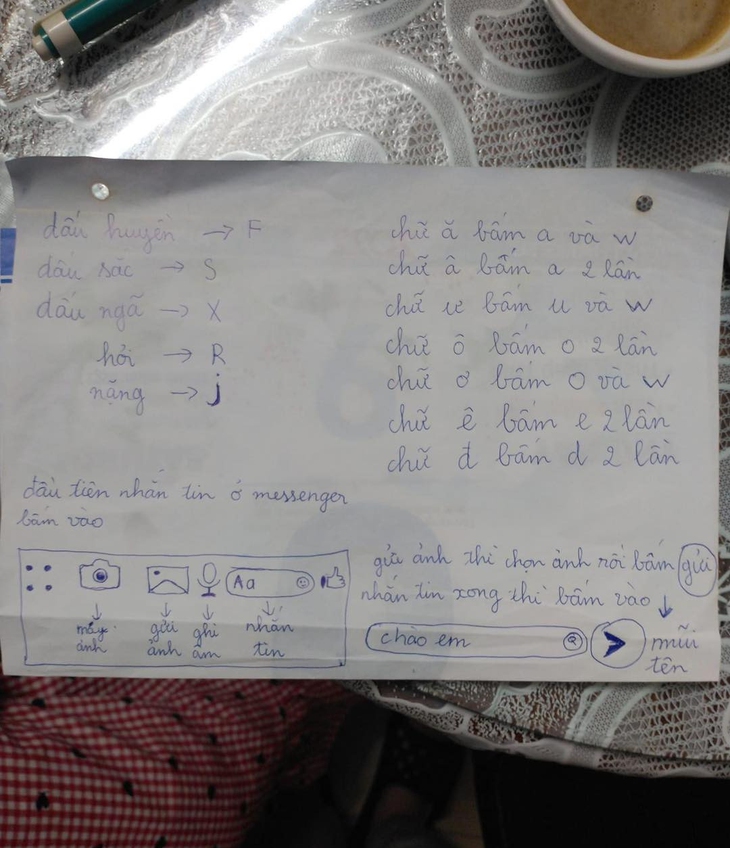 dấu huyền → F
dấu sắc → S
dấu ngã → X
hỏi → R
nặng → j
chữ ă bấm a và w
chữ â bấm a 2 lần
chữ ư bấm u và w
chữ ô bấm o 2 lần
chữ ơ bấm o và w
chữ ê bấm e 2 lần
chữ đ bấm d 2 lần
đầu tiên nhắn tin ở messenger
bấm vào
Aa
máy ảnh
gửi ảnh
ghi âm
nhắn tin
gửi ảnh thì chọn ảnh rồi bấm gửi
nhắn tin xong thì bấm vào
chào em
mũi tên